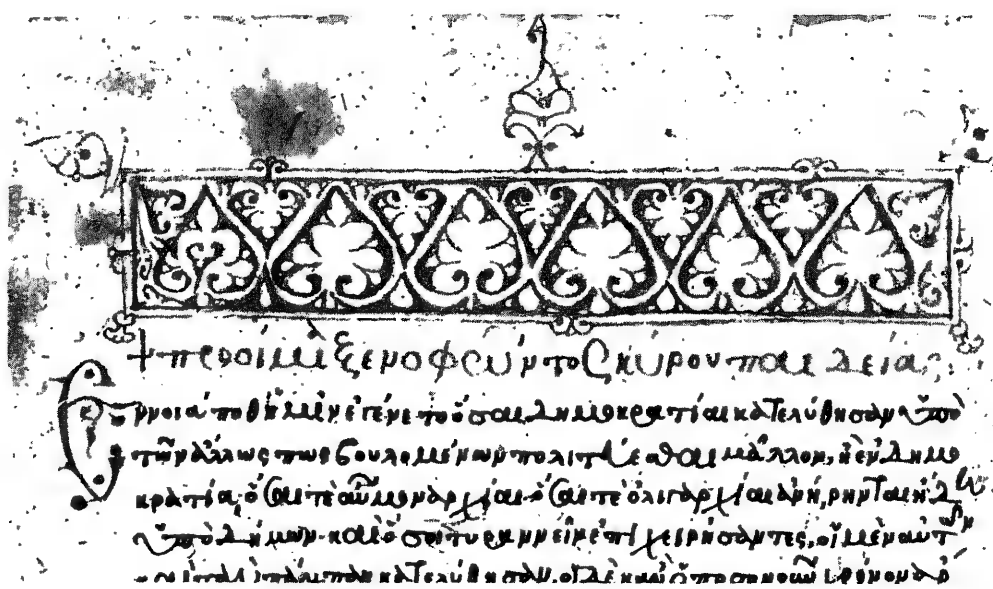 + προοίμι ξενοφῶντος κύρου παιδείας:
ἔννοιά ποθ' ἡμῖν ἐγένετο ὅσαι δημοκρατίαι κατελύθησαν ὑπὸ
τῶν ἄλλως πως βουλομένων πολιτεύεσθαι μᾶλλον, ἢ ἐν δημο
κρατία· ὅσαι τὲ αὖ μοναρχίαι· ὅσαι τὲ ὀλιγαρχίαι ἀνήρηνται ἤδη
ὑπὸ δήμων· καὶ ὅσοι τυραννεῖν ἐπιχειρήσαντες, οἱ μὲν αὐτῶν
πάμπαν κατελύθησαν, οἱ δὲ κἂν ὁποσονοῦν χρόνον